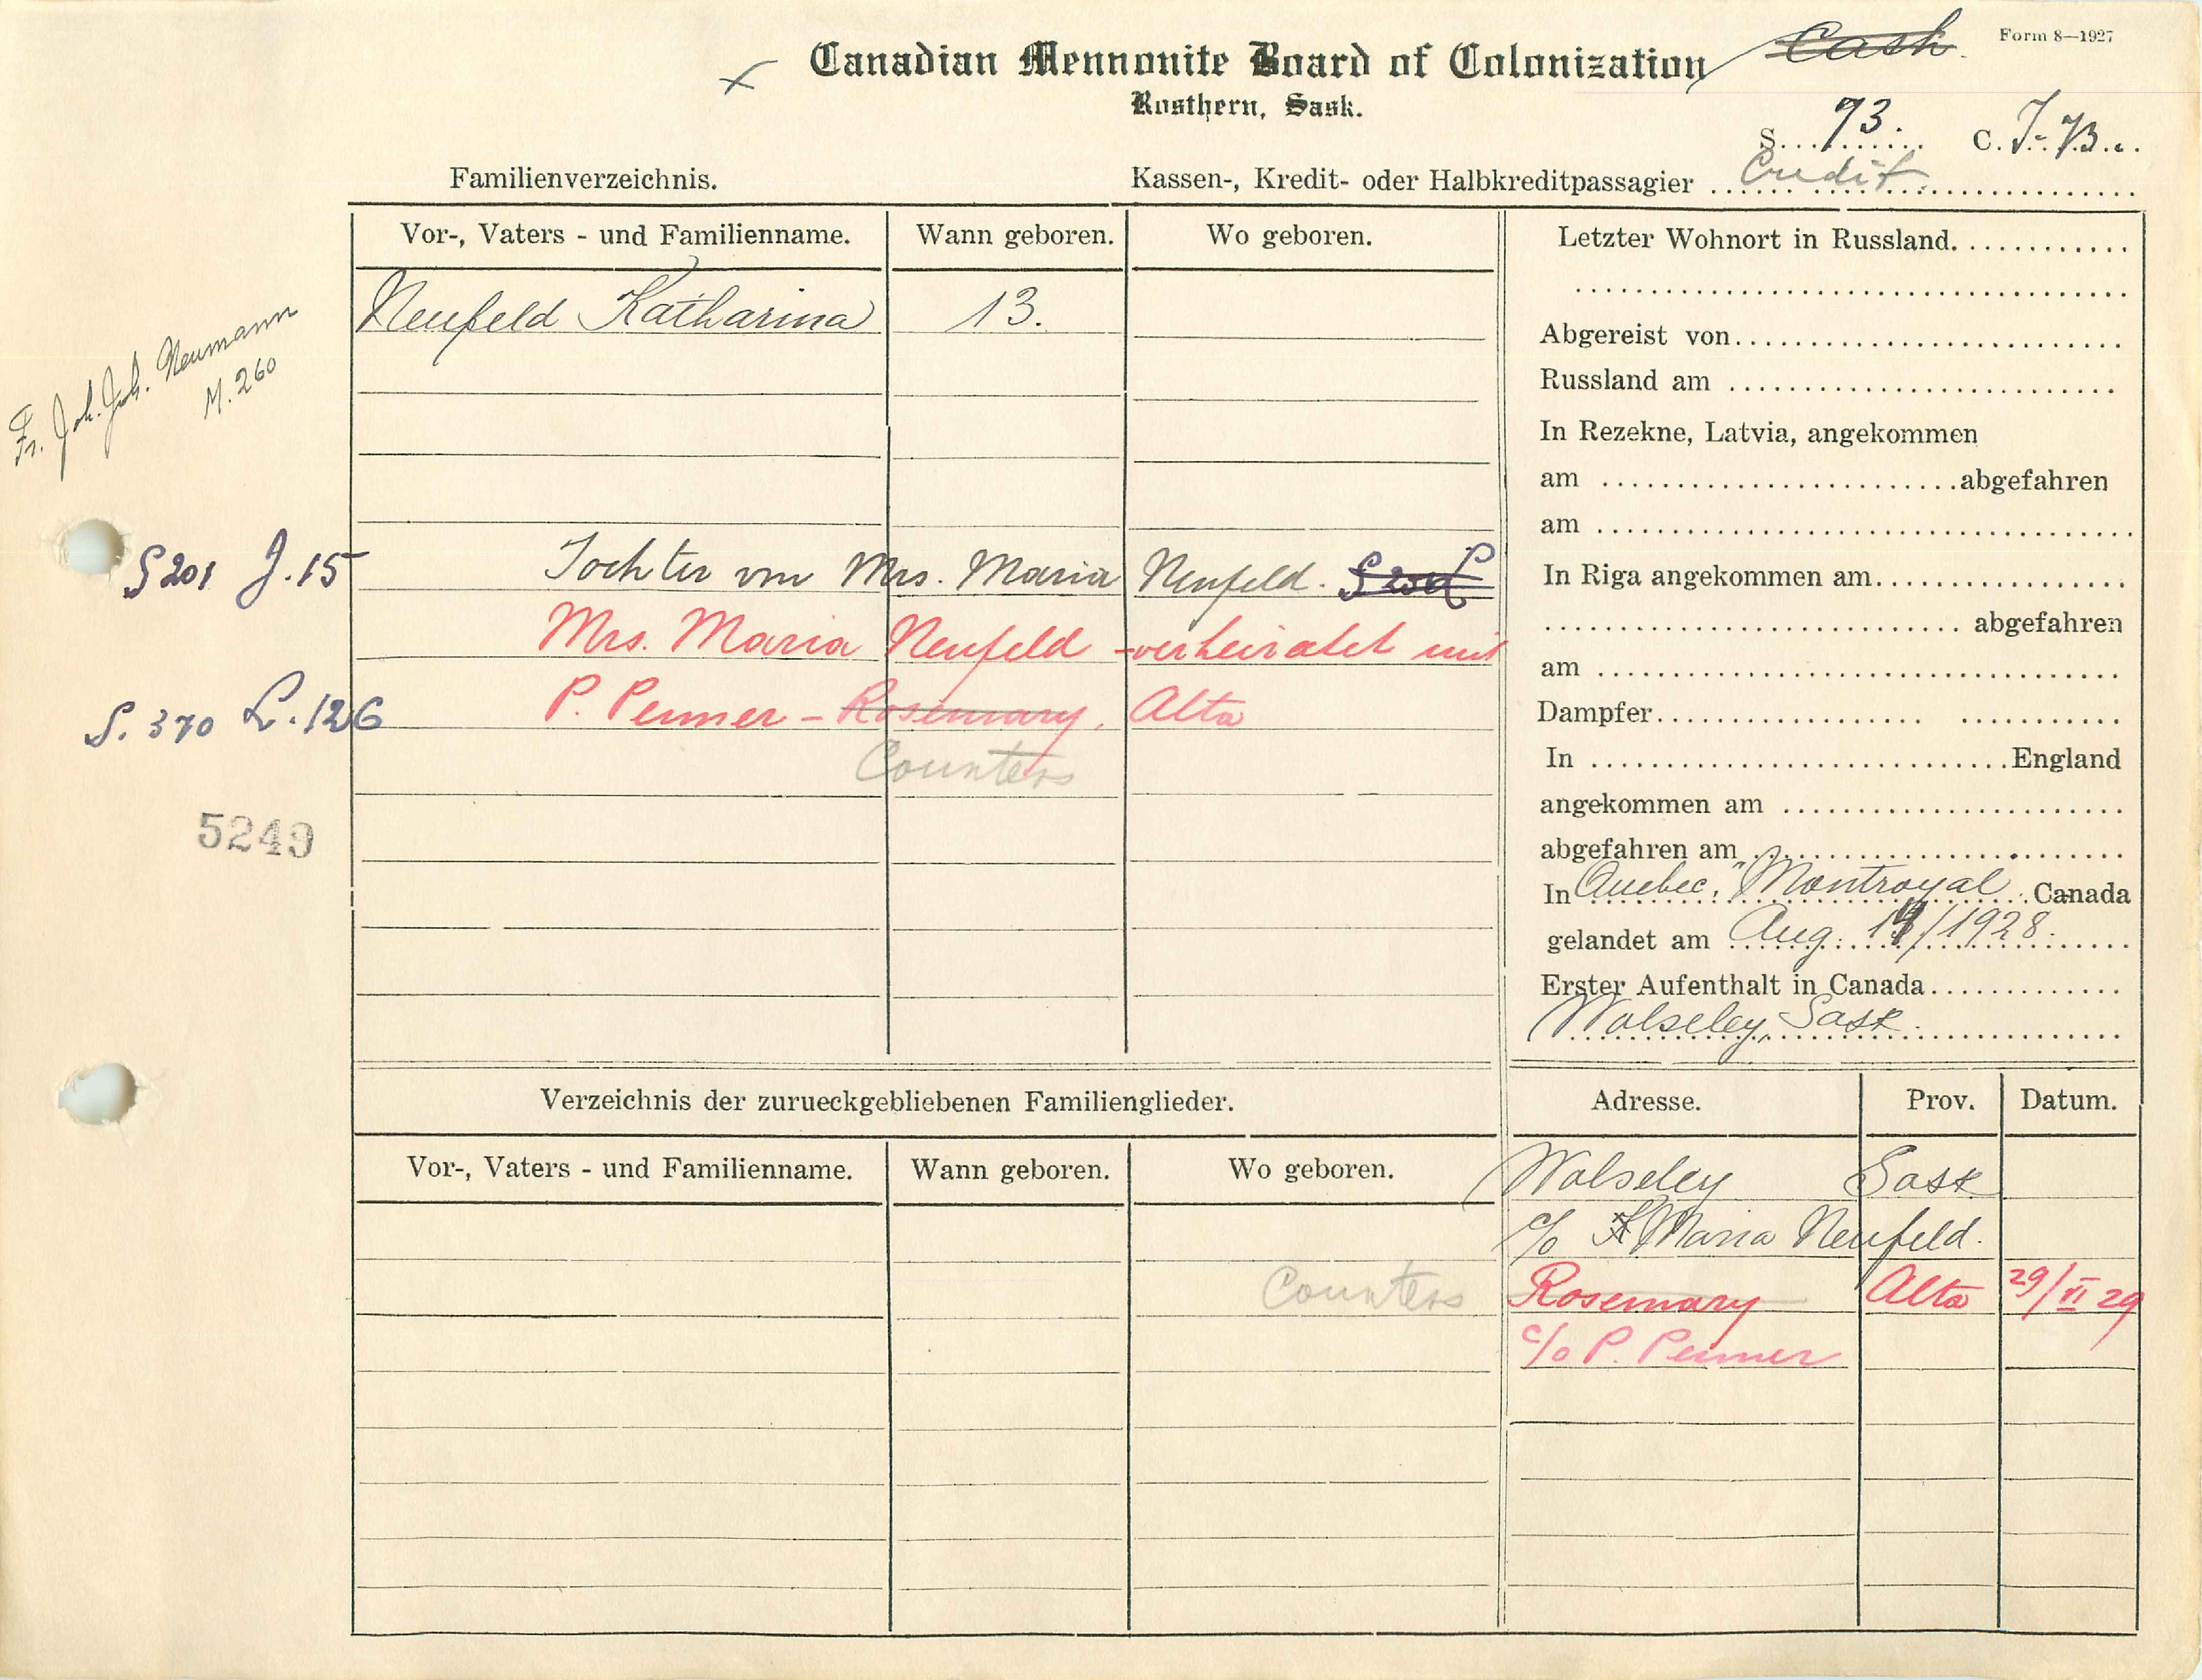 Cash
Form 8—1927
Canadian Mennonite Board of Colonization
Rosthern, Sask.
S. 73. C. J-73.
Familienverzeichnis.
Kassen-, Kredit- oder Halbkreditpassagier Credit
Vor-, Vaters - und Familienname. Wann geboren. Wo geboren.
Neufeld Katharina 13.
Fr. Joh. Joh. Neumann
M. 260
S 201 J. 15
Tochter von Mrs. Maria Neufeld.
Mrs. Maria Neufeld - verheiratet mit
S. 370 L. 126
P. Penner - Rosemary, Alta
Counters
5249
Letzter Wohnort in Russland.
Abgereist von
Russland am
In Rezekne, Latvia, angekommen
am abgefahren
am
In Riga angekommen am
abgefahren
am
Dampfer
In England
angekommen am
abgefahren am
In Quebec, "Montroyal Canada
gelandet am Aug. /1928.
Erster Aufenthalt in Canada
Wolseley, Sask.
Verzeichnis der zurueckgebliebenen Familienglieder.
Vor-, Vaters - und Familienname. Wann geboren. Wo geboren.
Adresse. Prov. Datum.
Wolseley Sask
c/o Maria Neufeld.
Counters
Rosemary Alta 29/VI 29
c/o P. Penner